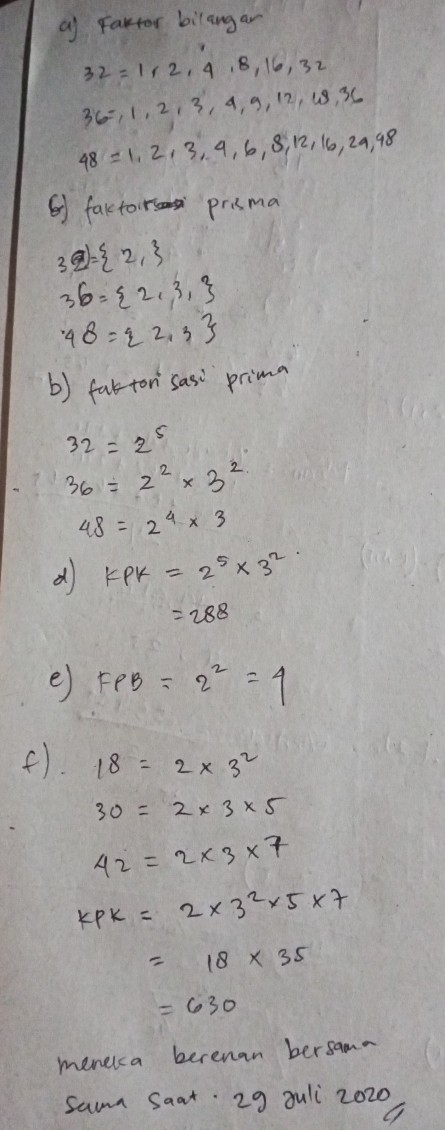 a) Faktor bilangan
32 = 1, 2, 4, 8, 16, 32
36 =, 1, 2, 3, 4, 9, 12, 18, 36
48 = 1, 2, 3, 4, 6, 8, 12, 16, 24, 48
b) faktor prisma
32 = { 2, }
36 = { 2, 3, }
48 = { 2, 3 }
b) faktorisasi prima
32 = 2⁵
36 = 2² × 3²
48 = 2⁴ × 3
d) KPK = 2⁵ × 3²
= 288
e) FPB = 2² = 4
f). 18 = 2 × 3²
30 = 2 × 3 × 5
42 = 2 × 3 × 7
KPK = 2 × 3² × 5 × 7
= 18 × 35
= 630
mereka berenan bersama
sama saat . 29 Juli 2020